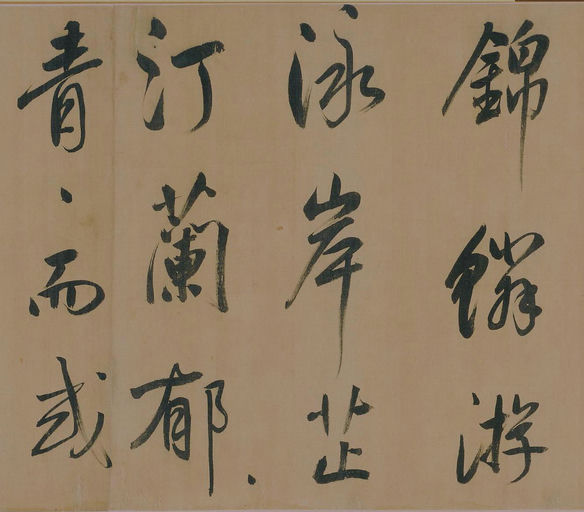 錦鱗游
泳岸芷
汀蘭郁〻
青〻而或